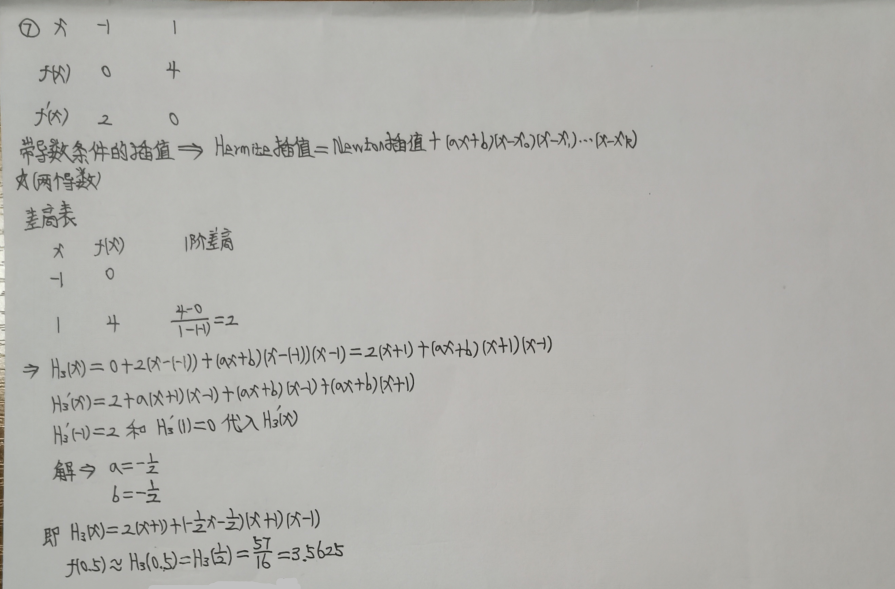 ⑦ x -1 1
f(x) 0 4
f'(x) 2 0
带导数条件的插值 ⇒ Hermite插值=Newton插值+(ax+b)(x-x₀)(x-x₁)···(x-xₖ)
☆(两个导数)
差商表
x f(x) 1阶差商
-1 0
1 4 (4-0)/(1-(-1))=2
⇒ H₃(x)=0+2(x-(-1))+(ax+b)(x-(-1))(x-1)=2(x+1)+(ax+b)(x+1)(x-1)
H₃'(x)=2+a(x+1)(x-1)+(ax+b)(x-1)+(ax+b)(x+1)
H₃'(-1)=2 和 H₃'(1)=0 代入H₃'(x)
解⇒ a=-1/2
b=-1/2
即 H₃(x)=2(x+1)+(-1/2x-1/2)(x+1)(x-1)
f(0.5)≈H₃(0.5)=H₃(1/2)=57/16=3.5625